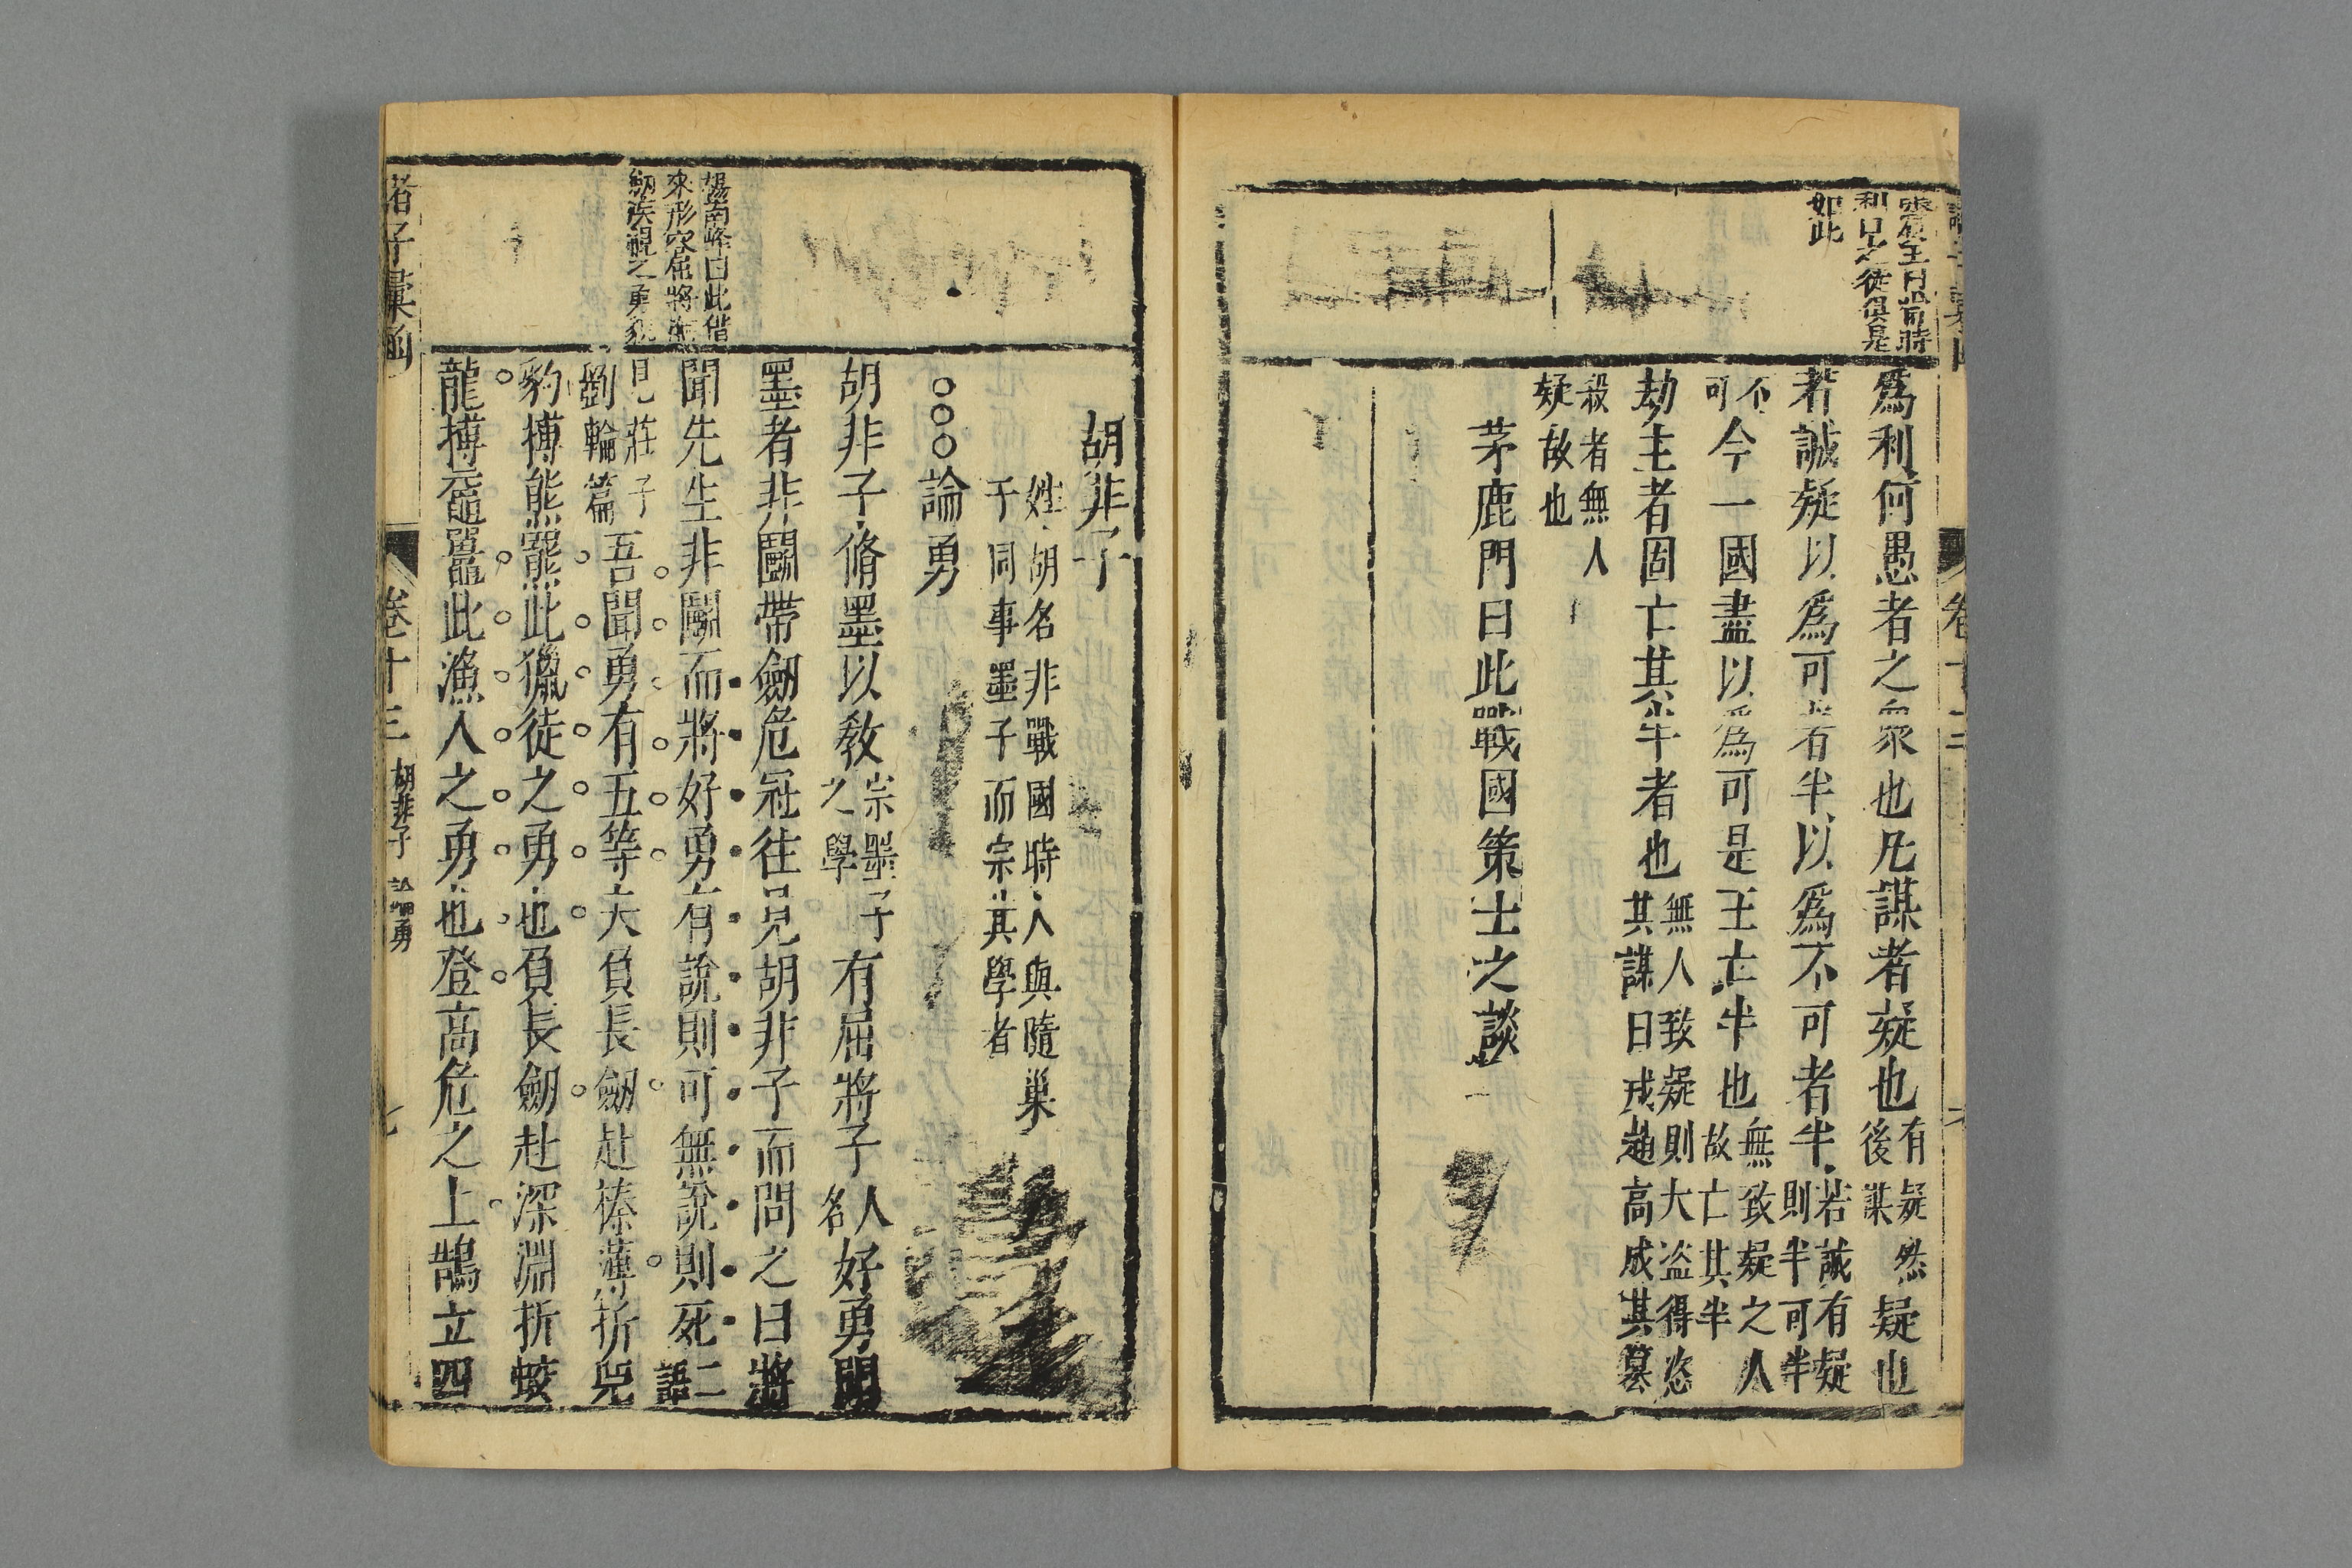 為利何愚者之衆也凡謀者疑也有疑然後謀疑也
若誠疑以為可者半以為不可者半若誠有疑則半可半
不可今一國盡以為可是王亡半也無致疑之人故亡其半
劫主者固亡其半者也無人致疑則大盗得恣其謀日戎趙高成其篡
殺者無人疑故也
茅鹿門曰此戰國策士之談
利口之徒俱是
如此
胡非子
姓胡名非戰國時人與隨巢
子同事墨子而宗其學者
○○○論勇
胡非子脩墨以教宗墨子之學有屈將子人名好勇聞
墨者非鬭帶劒危冠往見胡非子而問之曰將
聞先生非鬭而將好勇有說則可無說則死二語
見莊子劉輪篇吾聞勇有五等夫負長劒赴榛薄折兕
豹搏熊羆此獵徒之勇也負長劒赴深淵折蛟
龍搏黿鼉此漁人之勇也登高危之上鵠立四
楊南峰曰此借
來形容屈將
諸子彙函
卷十三
胡非子
論勇
七